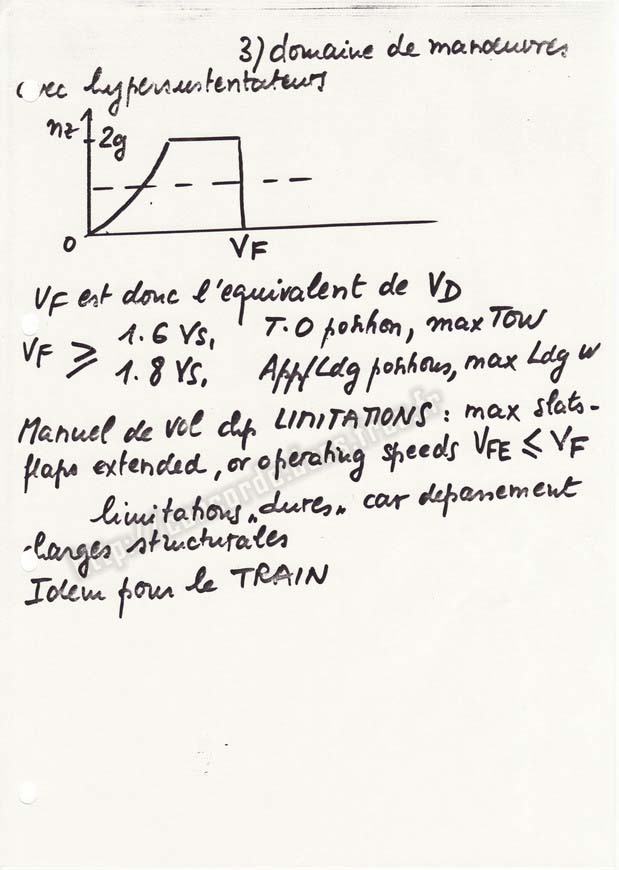 3) domaine de manœuvres
avec hypersustentateurs
nz
2g
0
VF
VF est donc l'equivalent de VD
VF ≥ 1.6 VS1 T.O position, max TOW
1.8 VS1 App/Ldg positions, max Ldg W
Manuel de vol chp LIMITATIONS : max slats-
flaps extended, or operating speeds VFE ≤ VF
limitations „dures" car depassement
charges structurales
Idem pour le TRAIN